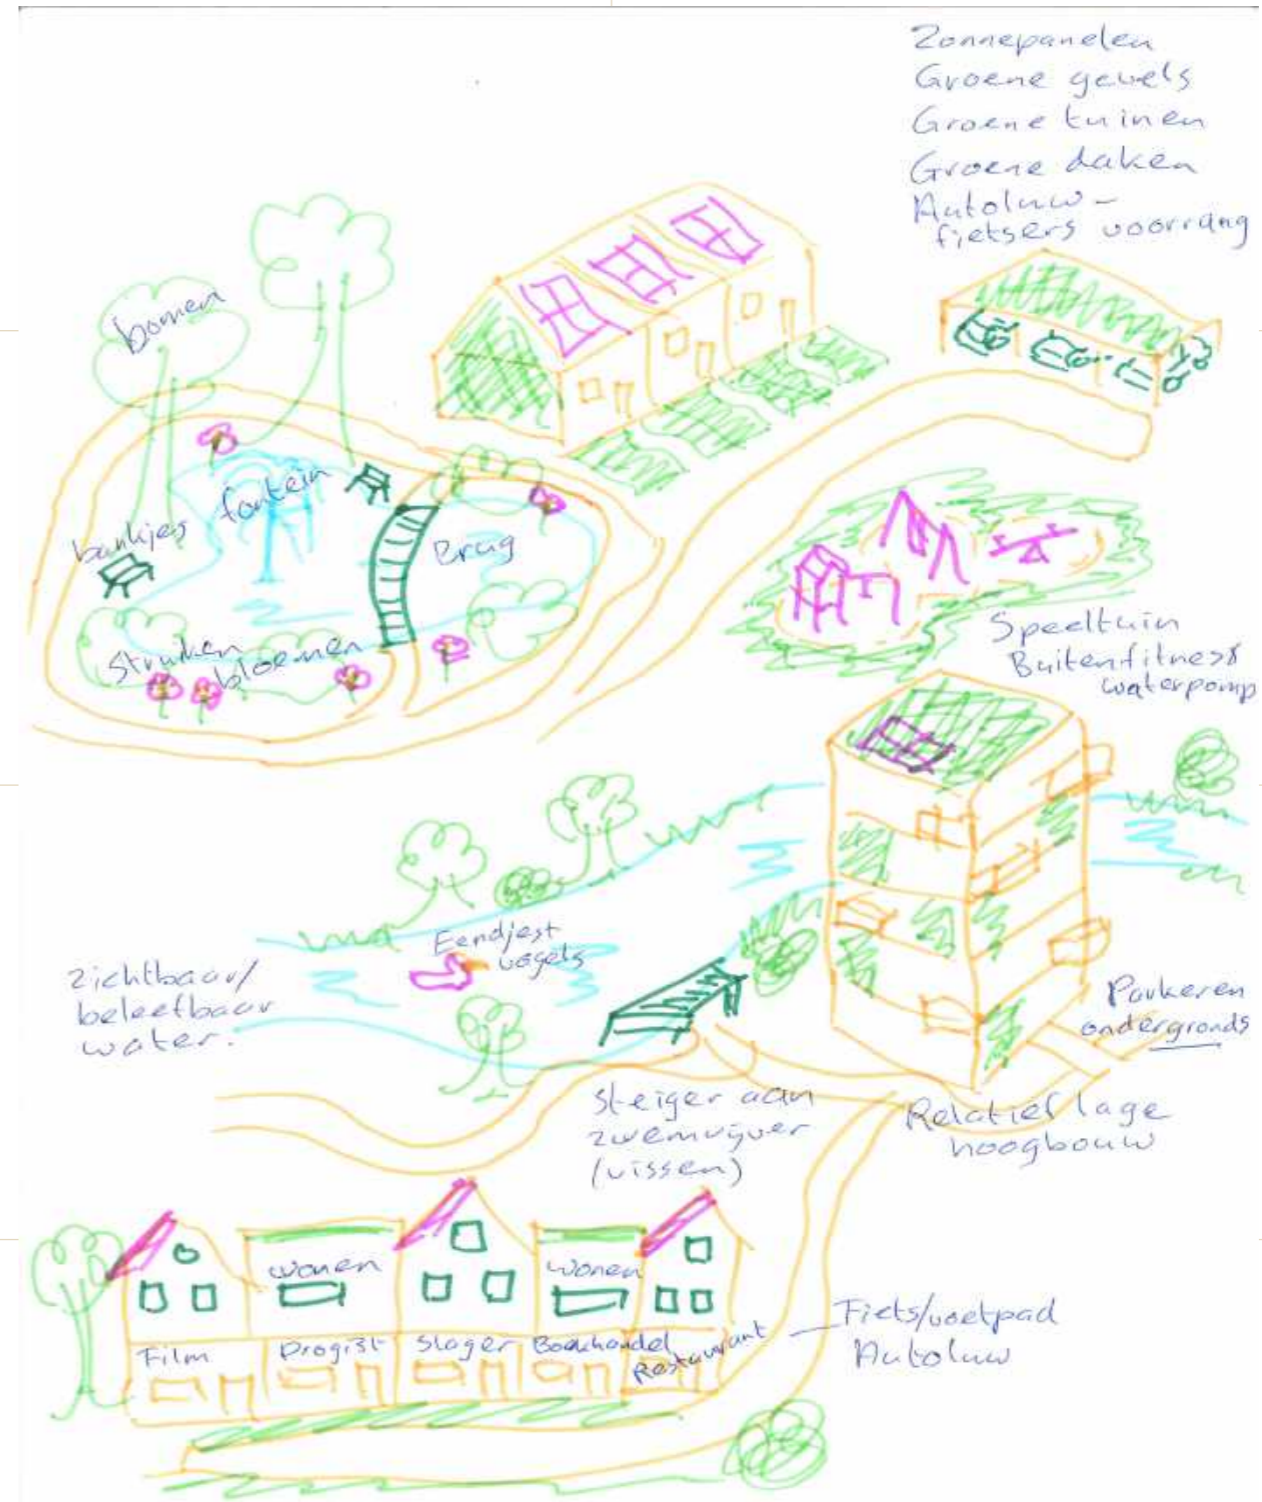 Zonnepanelen
Groene gevels
Groene tuinen
Groene daken
Autoluw -
fietsers voorrang
bomen
fontein
bankjes
Brug
Struiken
bloemen
Speeltuin
Buitenfitness
waterpomp
Eendjes+
vogels
Zichtbaar/
beleefbaar
water.
Parkeren
ondergronds
Steiger aan
zwemvijver
(vissen)
Relatief lage
hoogbouw
wonen
wonen
Film
Drogist
Slager
Boekhandel
Restaurant
Fiets/voetpad
Autoluw